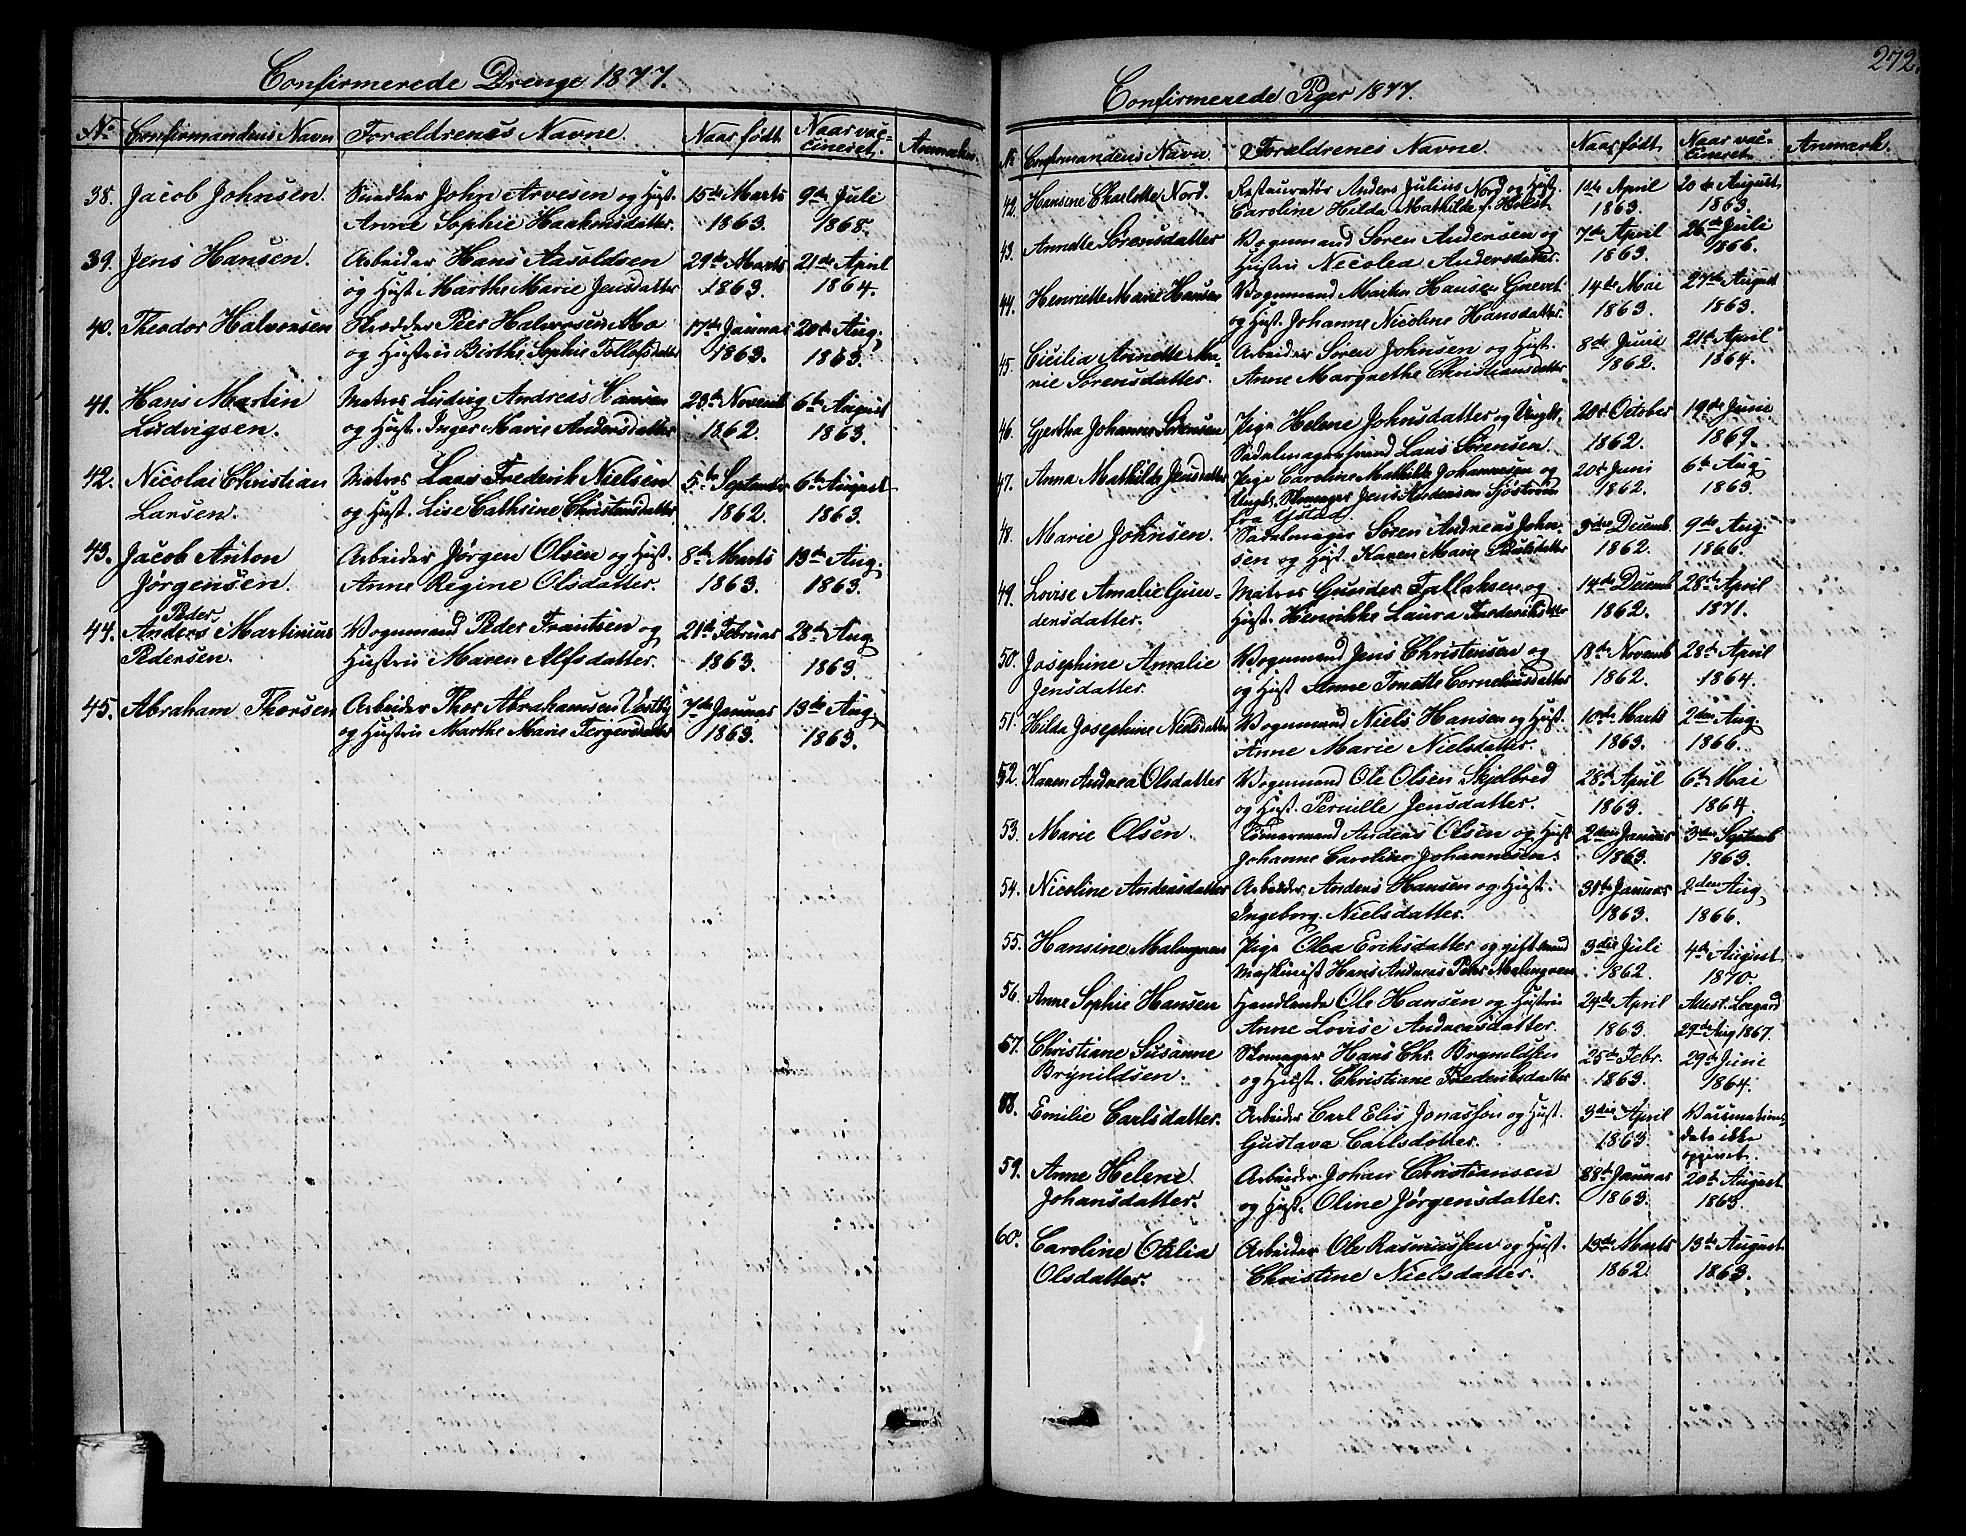 Confirmerede Drenge 1877.
No Confirmandens Navn Forældrenes Navne. Naar født Naar vac-
cineret. Anmærkn.
38. Jacob Johnsen. Snedker John Arvesen og Hust. 15de Marts 9de Juli
Anne Sophie Haakensdatter. 1863. 1868.
39. Jens Hansen. Arbeider Hans Aasoldsen 29de Marts 21de April
og Hust. Marthe Marie Jensdatter 1863. 1864.
40. Theodor Halvorsen Skrædder Peer Halvorsen Mo 17de Januar 20de Aug.
og Hustru Birthe Sophie Tollefsdatter 1863. 1863.
41. Hans Martin Matros Ludvig Andreas Hansen 23de Novemb 6te August
Ludvigsen. og Hust. Inger Marie Andersdatter 1862. 1863.
42. Nicolai Christian Matros Lars Frederik Nielsen 5te September 6te August
Larsen. og Hust. Lise Cathrine Christensdatter 1862. 1863.
43. Jacob Anton Arbeider Jørgen Olsen og Hust. 8de Marts 13de Aug.
Jørgensen. Anne Regine Olsdatter. 1863. 1863.
Peder
44. Anders Martinius Vognmand Peder Frantsen og 21de Februar 28de Aug.
Pedersen. Hustru Maren Alfsdatter. 1863. 1863.
45. Abraham Thorsen Arbeider Thor Abrahamsen 7de Januar 13de Aug.
og Hustru Marthe Marie 1863. 1863.
272.
Confirmerede Piger 1877.
N Confirmandens Navn. Forældrenes Navne. Naar født Naar vac-
cineret Anmærk.
42. Hansine Charlotte Nord. Restauratør Anders Julius Nord og Hust. 1ste April 20de August
Caroline Hilda Mathilde f. Holst. 1863. 1863.
43. Annette Sørensdatter Vognmand Søren Andersen og 7de April 26de Juli
Hustru Nicolea Andersdatter. 1863. 1866.
44. Henriette Marie Hansen Vognmand Martin Hansen 14de Mai 27de August
og Hust. Johanne Nicoline Hansdatter. 1863. 1863.
45. Cicilia Annette Ma- Arbeider Søren Johnsen og Hust. 8de Juni 21de April
rie Sørensdatter. Anne Margrethe Christiansdatter 1862. 1864.
46. Gjertha Johanne Sørensen Pige Helene Johnsdatter og Ungk. 20de October 19de Juni
Sadelmagersvend Lars Sørensen. 1862. 1869.
47. Anna Mathilde Jensdatter Pige Caroline Mathilde Johannesen og 20de Juni 6te Aug.
Ungk. Skomager Jens Andersen Sjöström 1862. 1863.
fra Ystad
48. Marie Johnsen. Sadelmager Søren Andreas John- 3die Decemb. 9de Aug.
sen og Hust. Karen Marie Paulsdatter 1862. 1866.
49. Lovise Amalie Gun- Matros Gunder Tallaksen og 14de Decemb 28de April
dersdatter. Hust. Henrikke Laura Frederiksdtr 1862. 1871.
50. Josephine Amalie Vognmand Jens Christensen og 18de Novemb 28de April
Jensdatter. og Hust Anne Tonette Corneliusdatter 1862. 1864.
51. Hilda Josephine Nielsdatter Vognmand Niels Hansen og Hust. 10de Marts 2den Aug.
Anne Marie Nielsdatter. 1863. 1866.
52. Karen Andrea Olsdatter Vognmand Ole Olsen Skjelbred 28de April 6te Mai
og Hust. Pernille Jensdatter. 1863. 1864.
53. Marie Olsen. Tømmermand Anders Olsen og Hust 2den Januar 3die Septemb
Johanne Caroline Johannesen. 1863. 1863.
54. Nicoline Andersdatter Arbeider Anders Hansen og Hust. 31te Januar 2den Aug.
Ingeborg Nielsdatter. 1863. 1866.
55. Hansine Malmgreen Pige Olea Eriksdatter og gift Mand 3die Juli 4de August
Maskinist Hans Andreas Peter Malmgreen 1862. 1870.
56. Anne Sophie Hansen Handlende Ole Hansen og Hustru 24de April Attest.
Anne Lovise Andreasdatter. 1863. 29de Aug 1867.
57. Christiane Susanne Skomager Hans Chr. Brynildsen 25de Febr. 29de Juni
Brynildsen. og Hust. Christiane Frederiksdatter 1863. 1864.
58. Emilie Carlsdatter. Arbeider Carl Elis Jonasson og Hust. 3die April Vaccinations
Gustava Carlsdotter. 1863 dato ikke
opgivet.
59. Anne Helene Arbeider Johan Christiansen Januar 20de August
Johansdatter. og Hust. Oline Jørgensdatter. 1863. 1863.
60. Caroline Otilia Arbeider Ole Rasmussen og Hust. 13de Marts 13de August
Olsdatter. Christine Nielsdatter. 1862 1863.